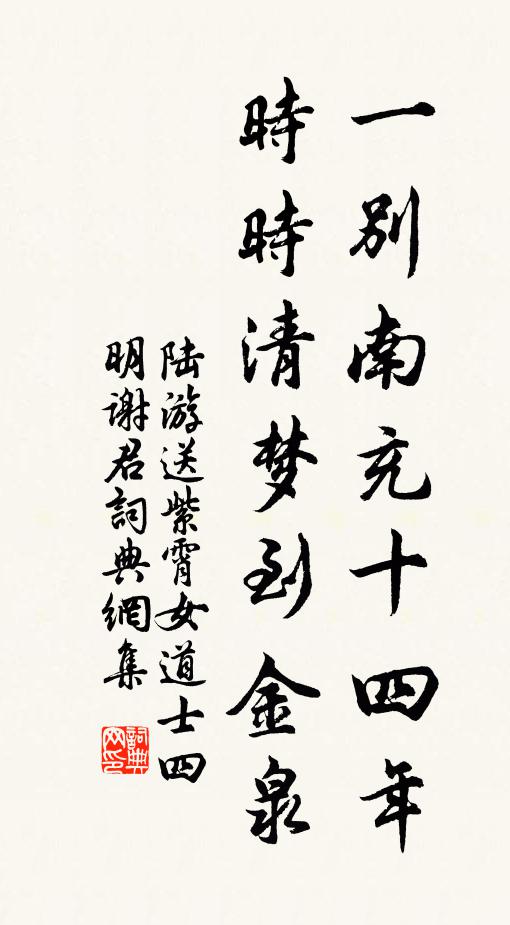 一别南充十四年
時時清梦到金泉
陆游送紫霄女道士四
明谢君詞典網集
詞典网印